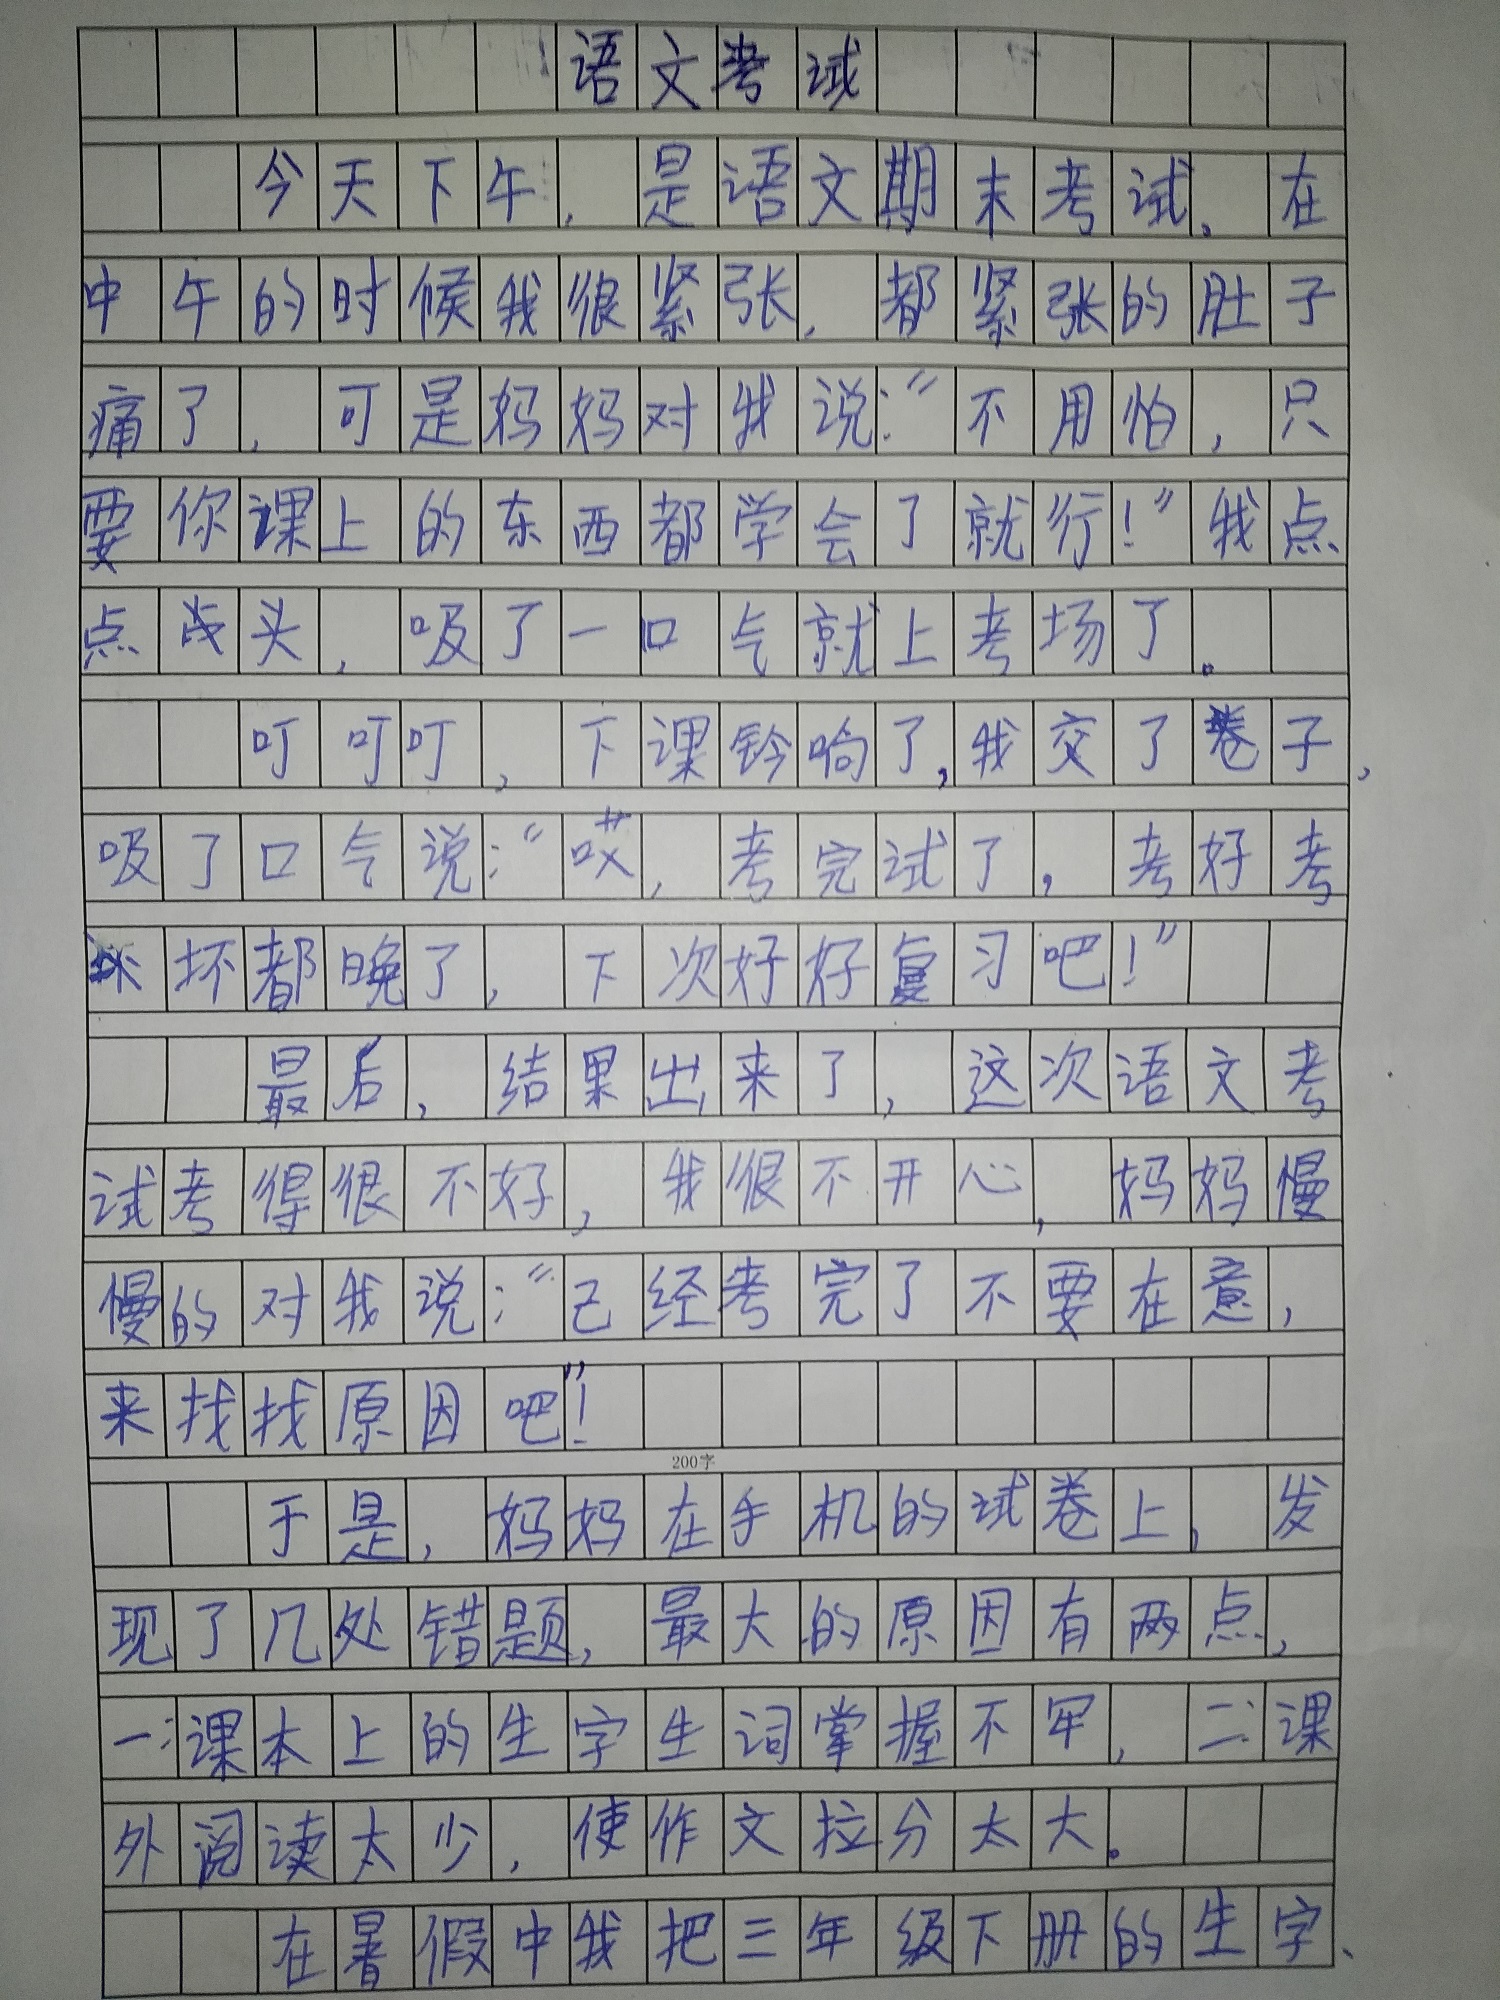 语文考试
今天下午,是语文期末考试。在
中午的时候我很紧张,都紧张的肚子
痛了,可是妈妈对我说:“不用怕,只
要你课上的东西都学会了就行!”我点
点头,吸了一口气就上考场了。
叮叮叮,下课铃响了,我交了卷子,
吸了口气说:“哎,考完试了,考好考
坏都晚了,下次好好复习吧!”
最后,结果出来了,这次语文考
试考得很不好,我很不开心,妈妈慢
慢的对我说:“已经考完了不要在意,
来找找原因吧”!
200字
于是,妈妈在手机的试卷上,发
现了几处错题,最大的原因有两点,
一:课本上的生字生词掌握不牢,二:课
外阅读太少,使作文拉分太大。
在暑假中我把三年级下册的生字、